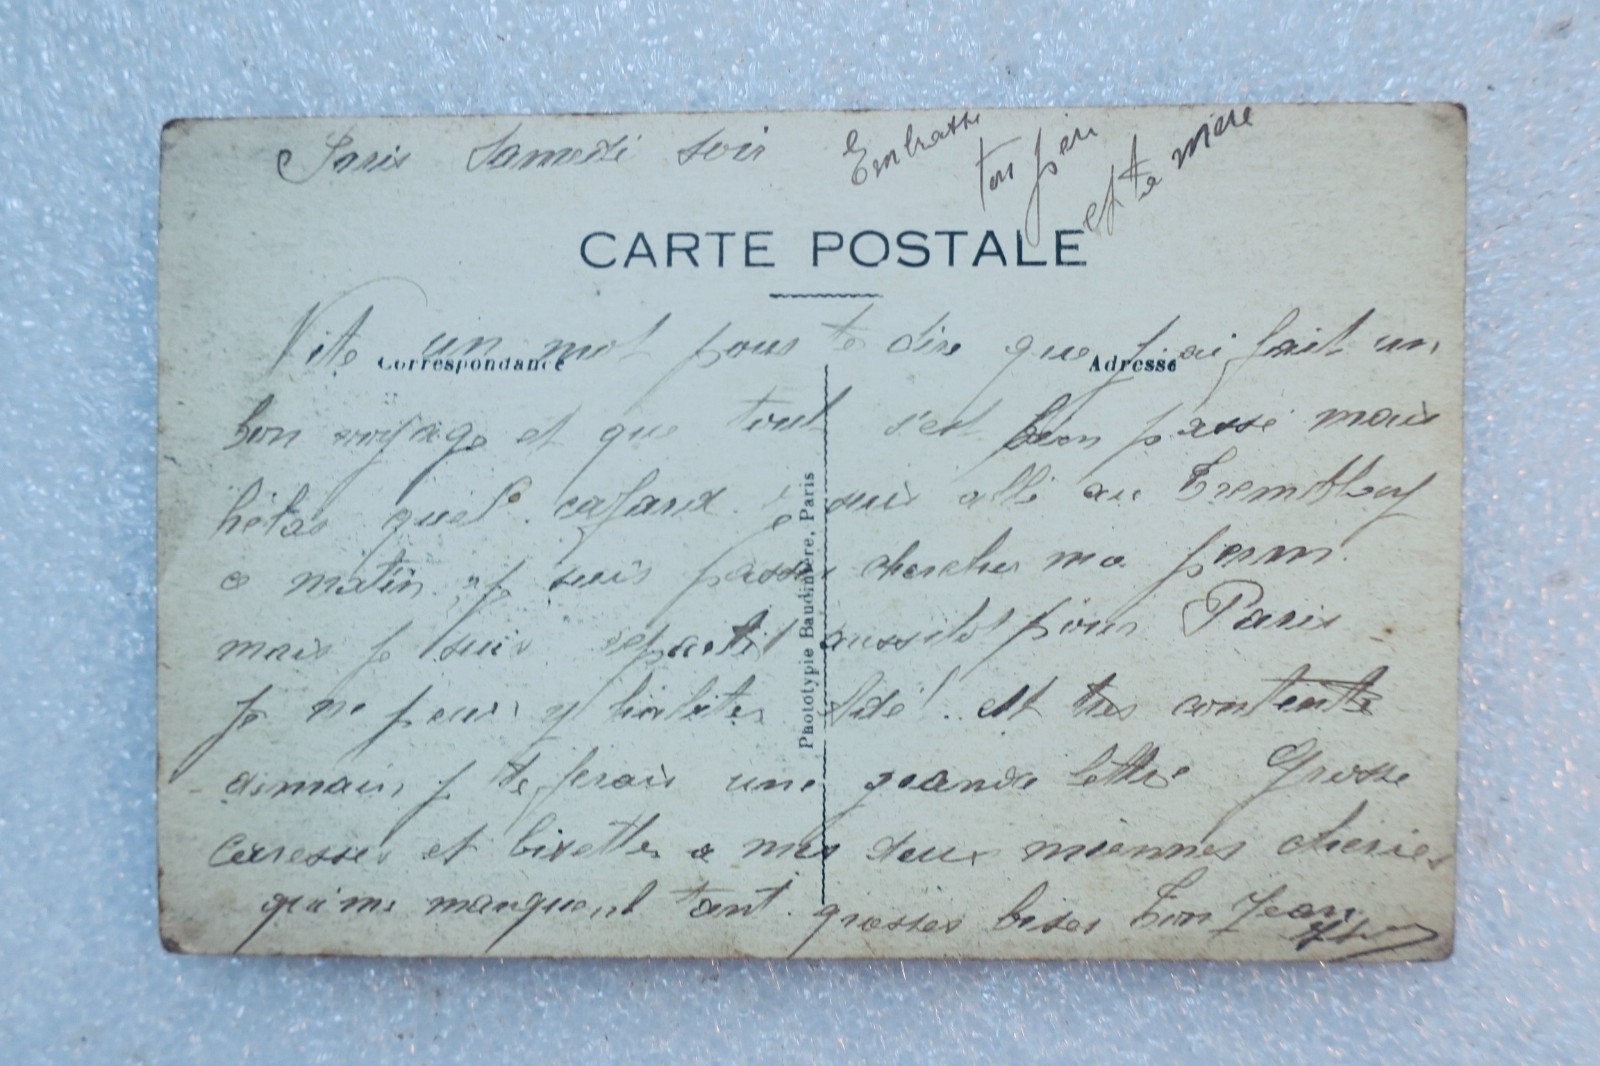 Paris Samedi soir
Embrasse
ton père
et ta mère
CARTE POSTALE
Correspondance
Adresse
Vite un mot pour te dire que j'ai fait un
bon voyage et que tout s'est bien passé mais
hélas quel cafard. je suis allé au Tremblay
ce matin je suis passer chercher ma perm.
mais je suis repartit aussitot pour Paris
je ne peux y habiter est très contente
demain je te ferais une grande lettre Grosse
caresses et bisettes a mes deux miennes cheries
qui me manquent tant. grosses bises Ton Jean
Phototypie Baudinière, Paris